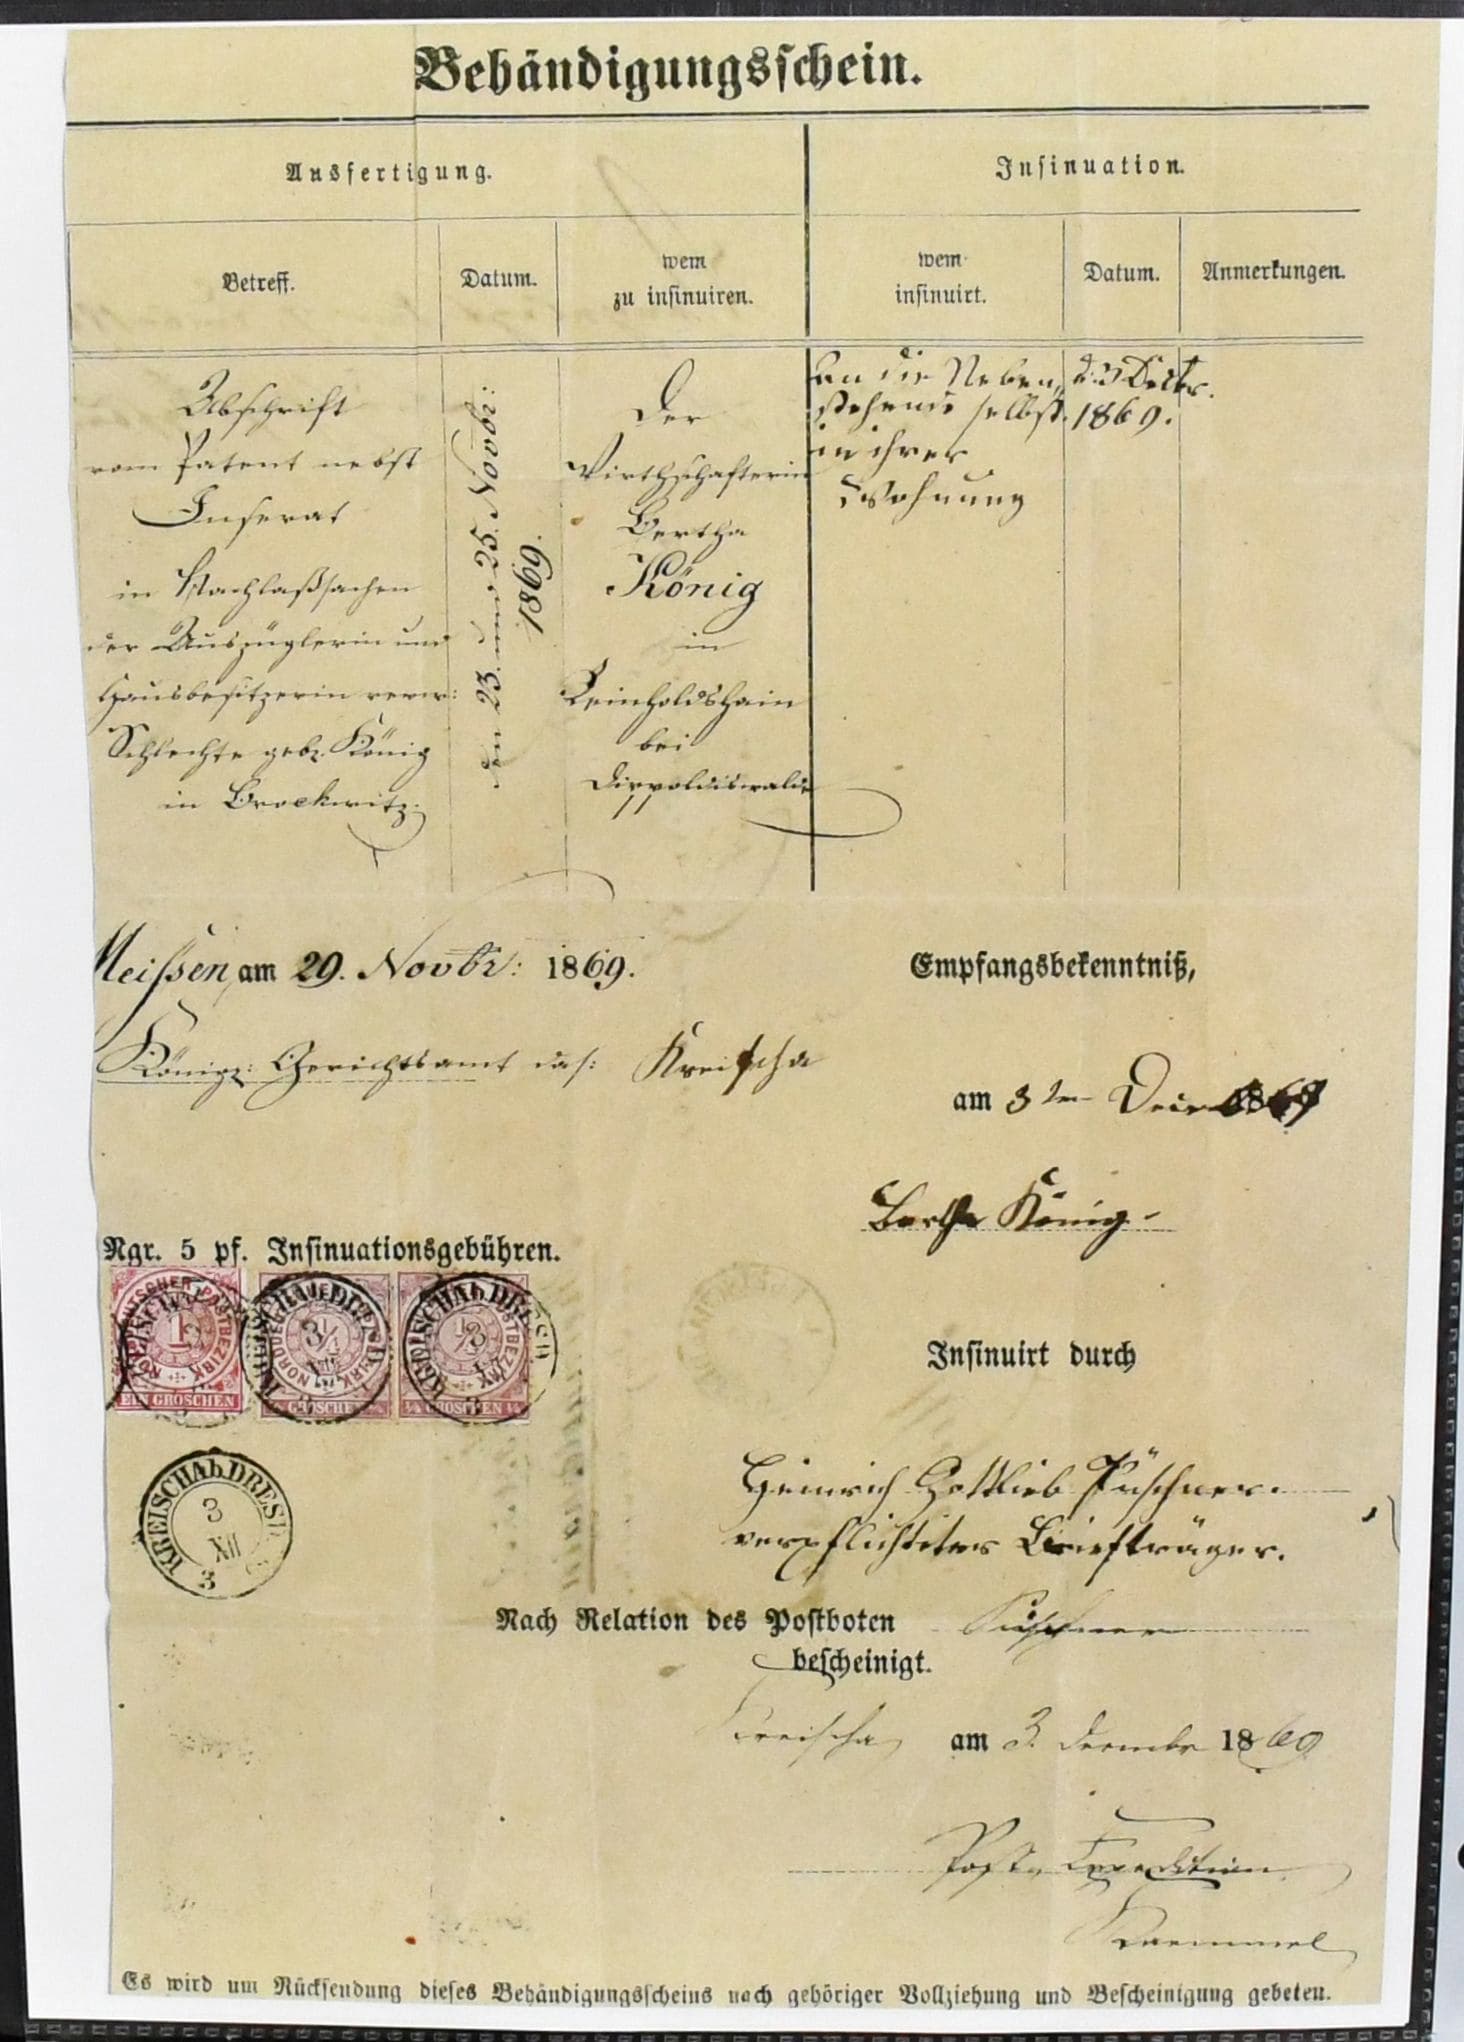 Behändigungsschein.
Ausfertigung.
Insinuation.
Betreff.
Datum.
wem
zu insinuiren.
wem
insinuirt.
Datum.
Anmerkungen.
Abschrift
vom Patent nebst
Inserat
in Nachlaßsachen
der Auszüglerin und
Hausbesitzerin verw:
Schlechte geb. König
in Brockwitz.
den 23. und 25. Novbr:
1869.
Der
Wirthschafterin
Bertha
König
in
Reinholdshain
bei
Dippoldiswalde
an die Neben„
stehende selbst.
in ihrer
Wohnung
d. 3 Decbr.
1869.
Meissen, am 29. Novbr: 1869.
Königl: Gerichtsamt das: Kreischa
Empfangsbekenntniß,
am 3ten 1869
Bertha König
Ngr. 5 pf. Insinuationsgebühren.
NORDDEUTSCHER POSTBEZIRK
1
EIN GROSCHEN
GROSCHEN
1/4 GROSCHEN 1/4
KREISCHA b. DRESD
3
XII
KREISCHA b. DRESD
3
XII
3
KREISCHA b. DRESD
3
XII
3
Insinuirt durch
Heinrich Gottlieb Püschner.
verpflichteter Briefträger.
Nach Relation des Postboten Püschner
bescheinigt.
Kreischa am 3. Decembr 1869
Post-Expedition
Es wird um Rücksendung dieses Behändigungsscheins nach gehöriger Vollziehung und Bescheinigung gebeten.